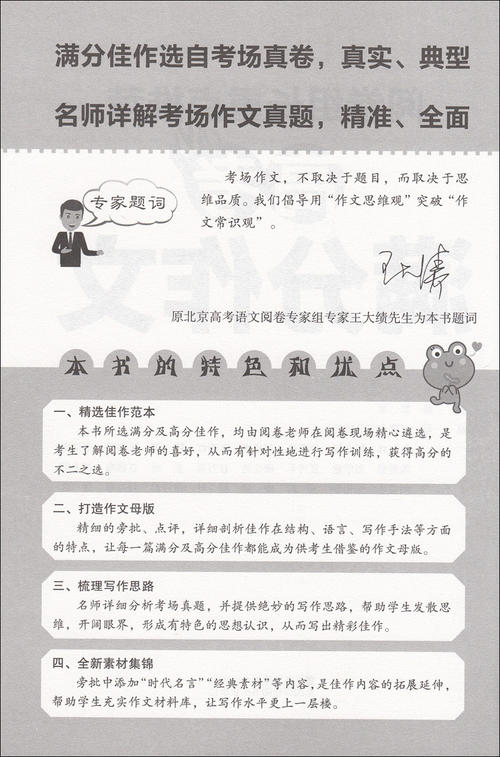 满分佳作选自考场真卷，真实、典型
名师详解考场作文真题，精准、全面
专家题词
考场作文，不取决于题目，而取决于思
维品质。我们倡导用“作文思维观”突破“作
文常识观”。
原北京高考语文阅卷专家组专家王大绩先生为本书题词
本书的特色和优点
一、精选佳作范本
本书所选满分及高分佳作，均由阅卷老师在阅卷现场精心遴选，是
考生了解阅卷老师的喜好，从而有针对性地进行写作训练，获得高分的
不二之选。
二、打造作文母版
精细的旁批、点评，详细剖析佳作在结构、语言、写作手法等方面
的特点，让每一篇满分及高分佳作都能成为供考生借鉴的作文母版。
三、梳理写作思路
名师详细分析考场真题，并提供绝妙的写作思路，帮助学生发散思
维，开阔眼界，形成有特色的思想认识，从而写出精彩佳作。
四、全新素材集锦
旁批中添加“时代名言”“经典素材”等内容，是佳作内容的拓展延伸，
帮助学生充实作文材料库，让写作水平更上一层楼。